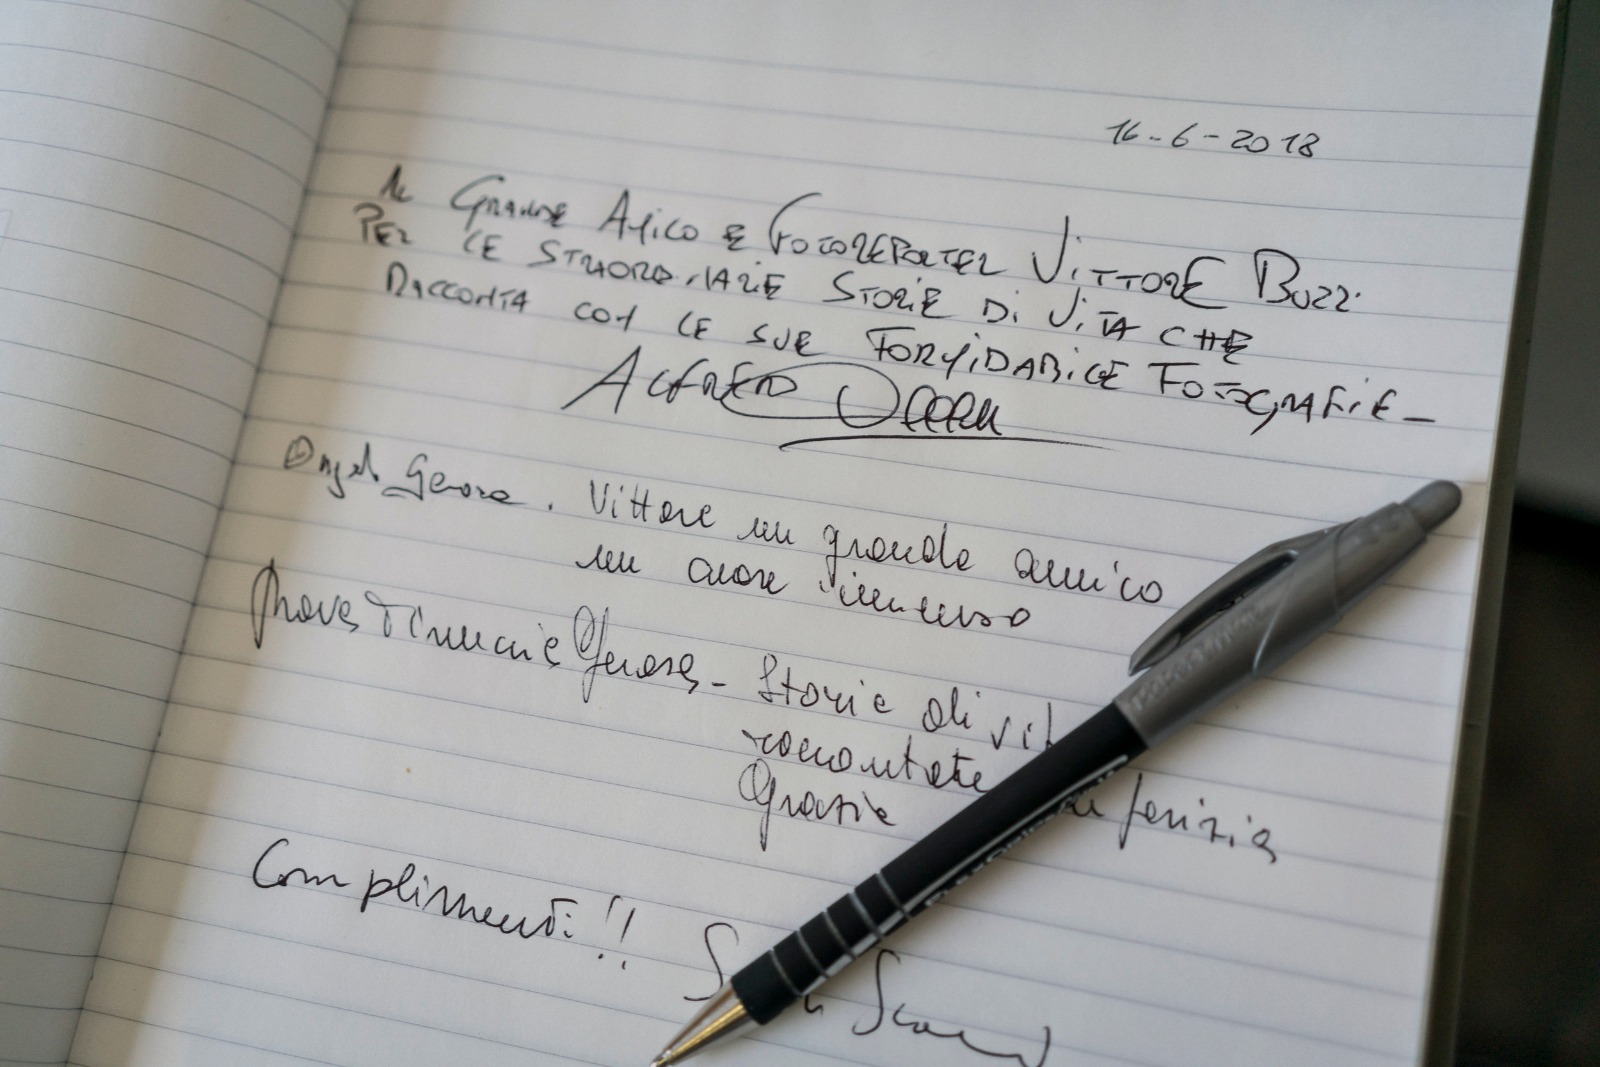 16-6-2018
AL GRANDE AMICO E FOTOREPORTER VITTORE BUZZI
PER LE STRAORDINARIE STORIE DI VITA CHE
RACCONTA CON LE SUE FORMIDABILE FOTOGRAFIE -
ALFREDO
Angelo Gerosa. Vittore un grande amico
un cuore immenso
Gerosa - Storie di
raccontate
Grazie
Complimenti!!